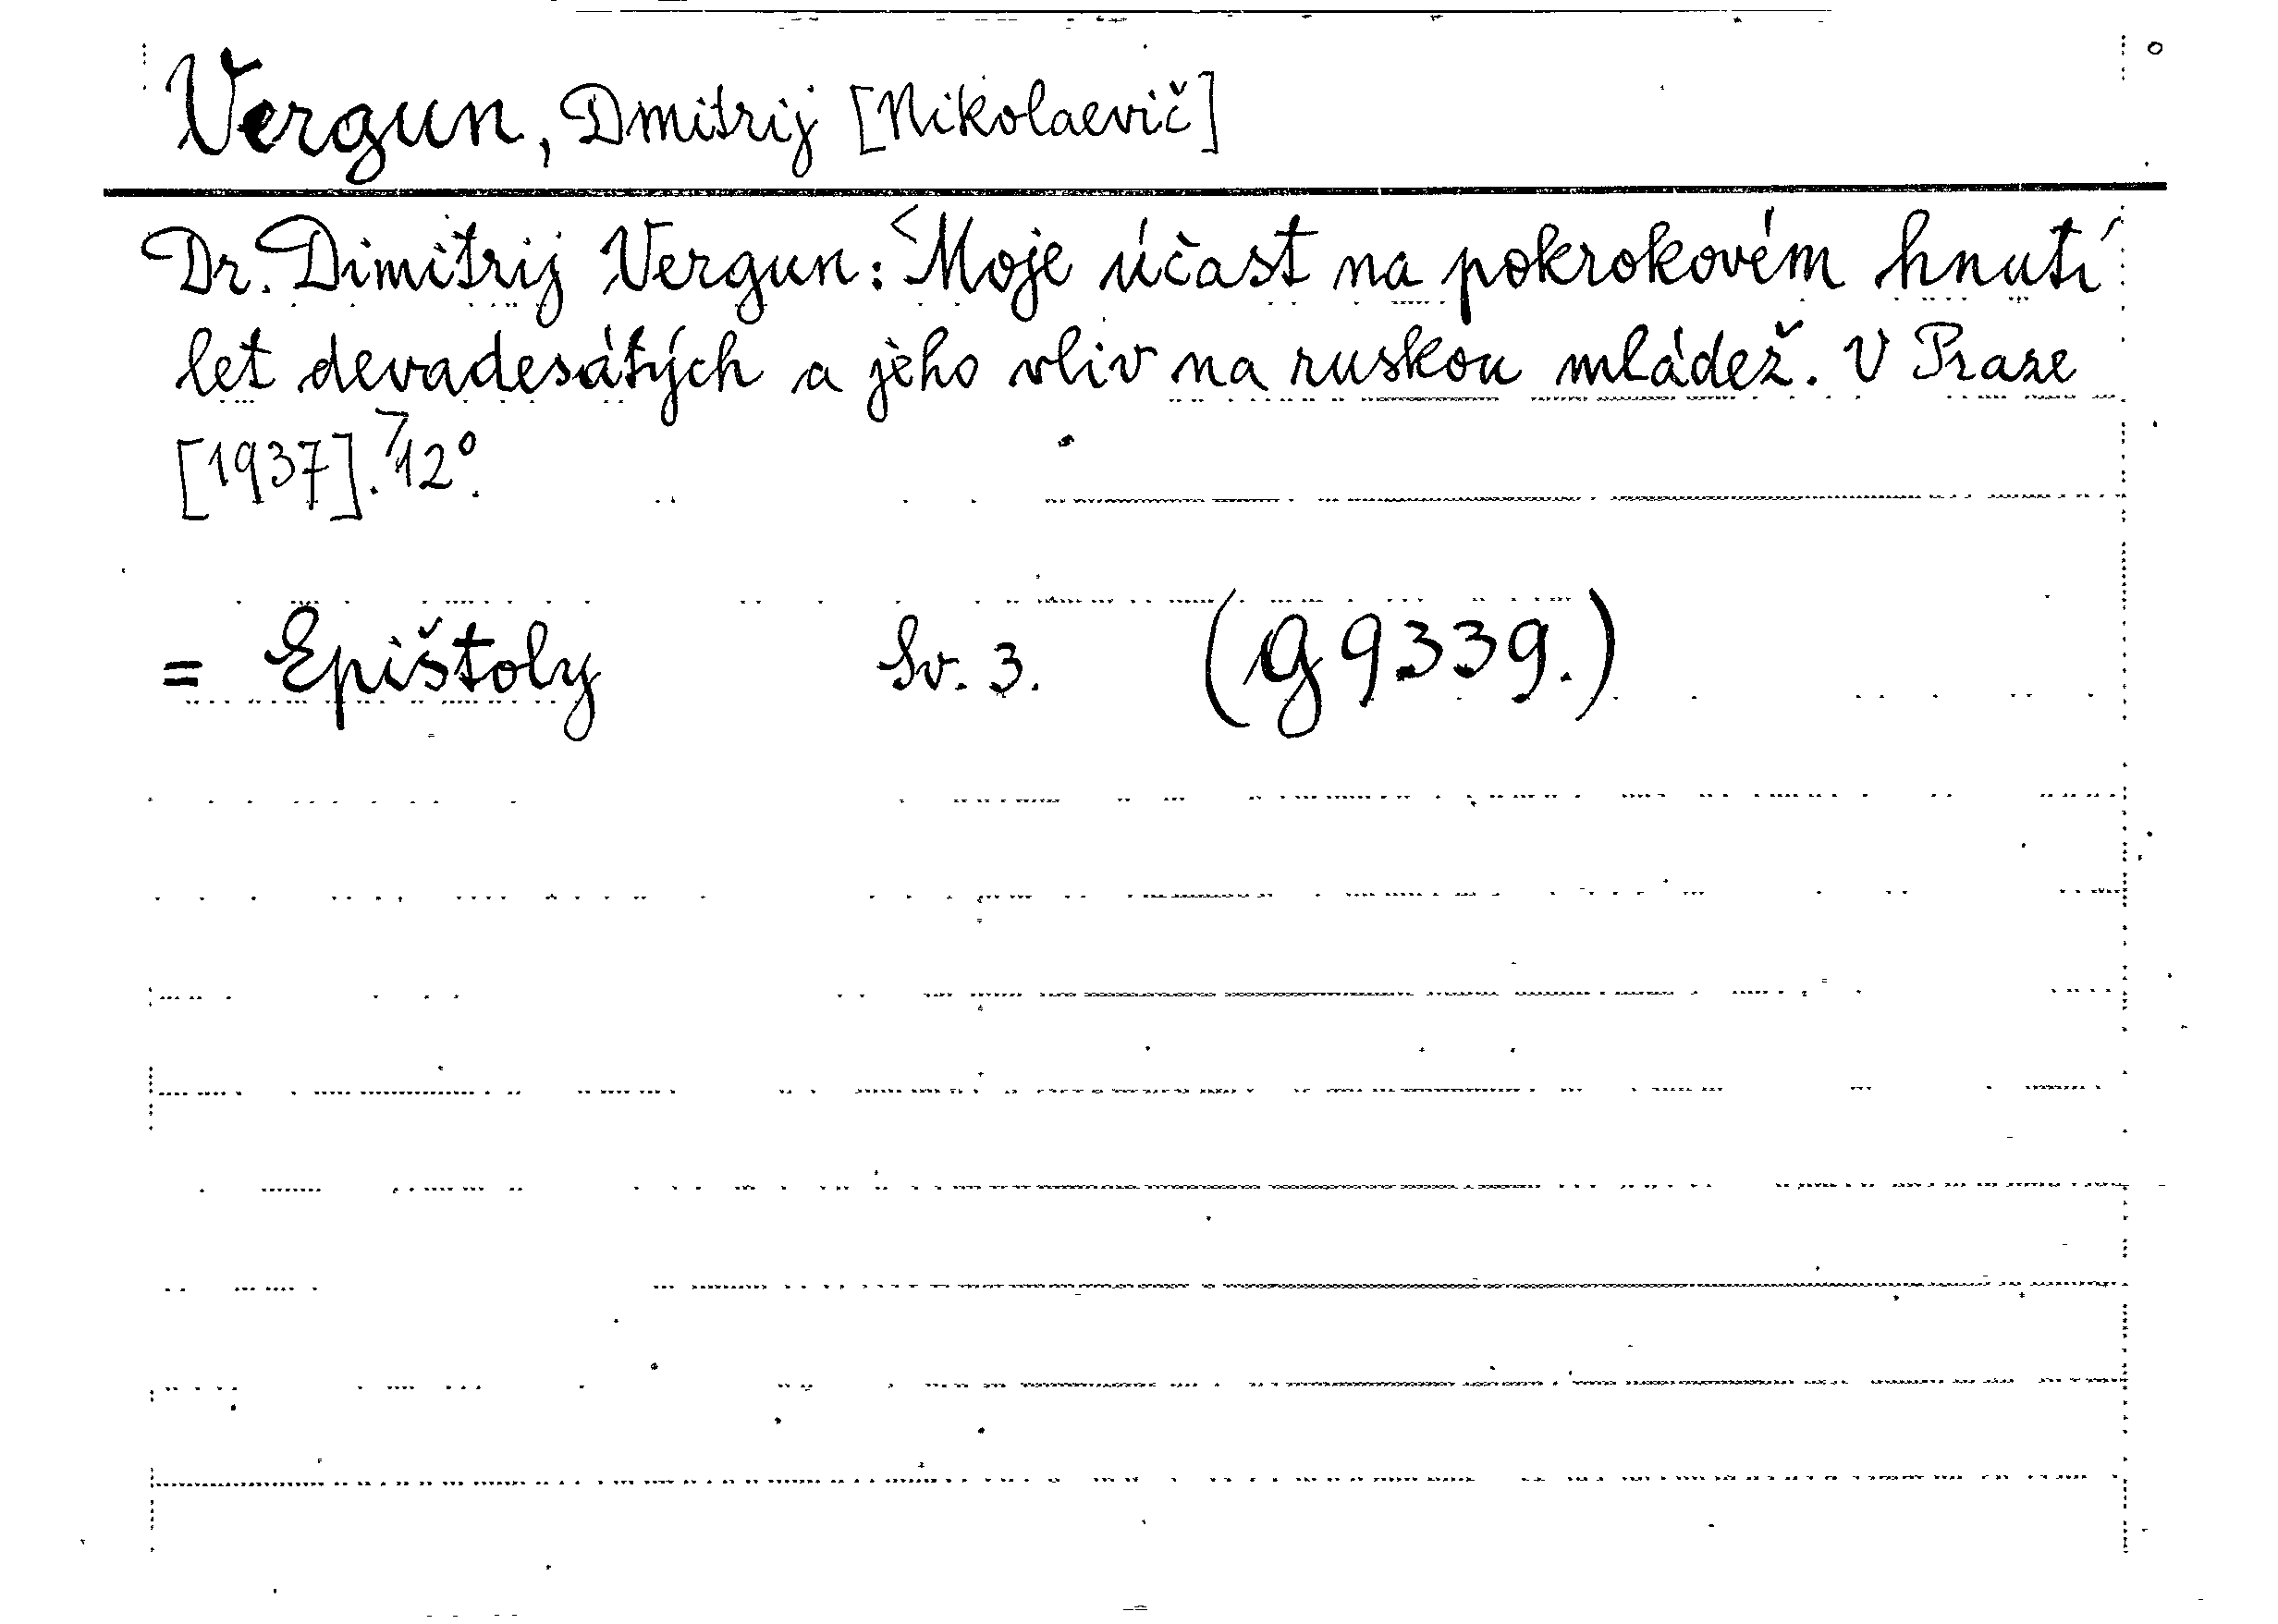 Vergun, Dmitrij [Nikolaevič]
Dr. Dimitrij Vergun: <Moje účast na pokrokovém hnutí
let devadesátých a jeho vliv na ruskou mládež. V Praze
[1937].> 12°.
= Epištoly Sv. 3. (G 9339.)